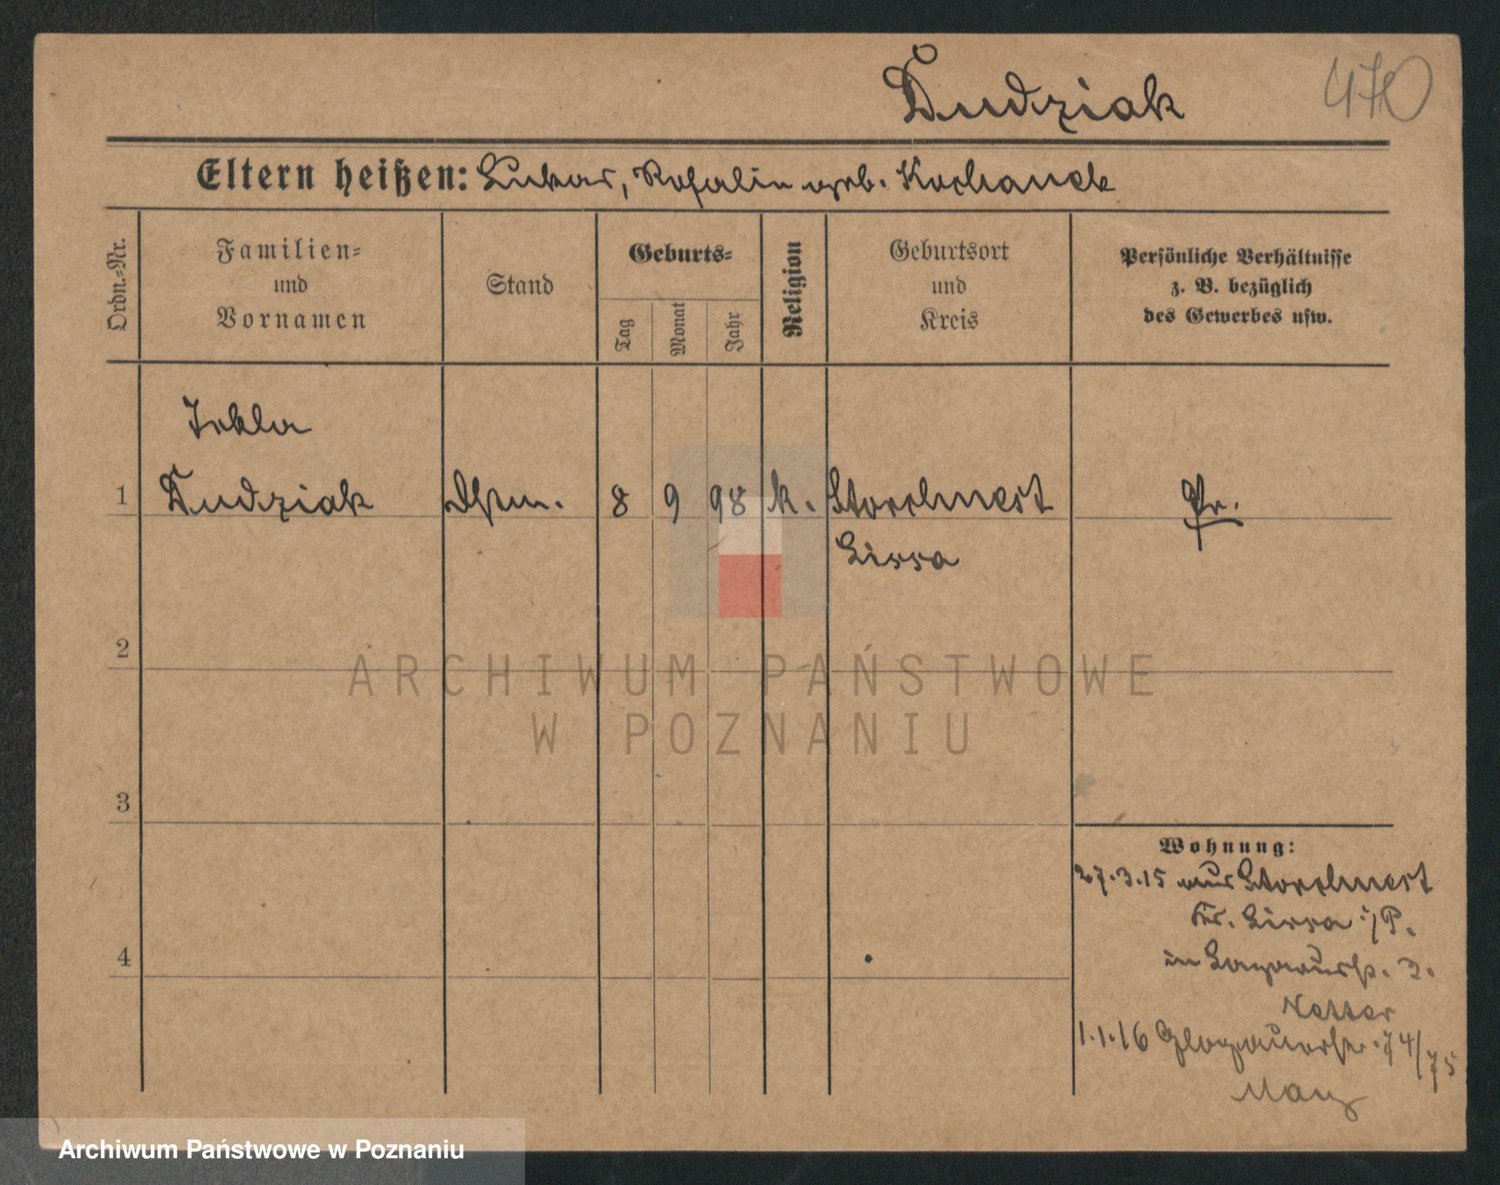 Dudziak
470
Eltern heißen: Lukas, Rosalie geb. Kochanek
Ordn.-Nr.
Familien-
und
Vornamen
Stand
Geburts-
Tag
Monat
Jahr
Religion
Geburtsort
und
Kreis
Persönliche Verhältnisse
z. B. bezüglich
des Gewerbes usw.
Tekla
1 Dudziak Dstm. 8 9 98 k. Storchnest Pr.
Lissa
2
3
4
Wohnung:
27.3.15 aus Storchnest
Kr. Lissa i/P.
in 3.
1.1.16 Glogauerstr. 74/75
ARCHIWUM PAŃSTWOWE
W POZNANIU
Archiwum Państwowe w Poznaniu